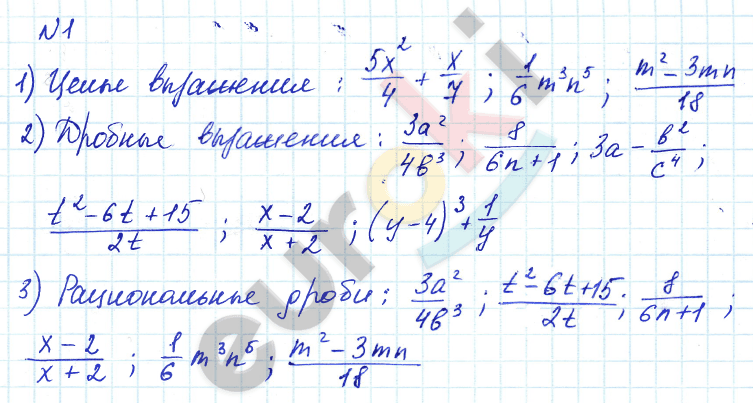 №1
1) Целые выражения: 5x²/4 + x/7; 1/6 m³n⁵; (m² − 3mn)/18
2) Дробные выражения: 3a²/4b³; 8/(6n+1); 3a − b²/c⁴;
(t² − 6t + 15)/2t; (x − 2)/(x + 2); (y − 4)³ + 1/y
3) Рациональные дроби: 3a²/4b³; (t² − 6t + 15)/2t; 8/(6n+1);
(x − 2)/(x + 2); 1/6 m³n⁵; (m² − 3mn)/18
euroki